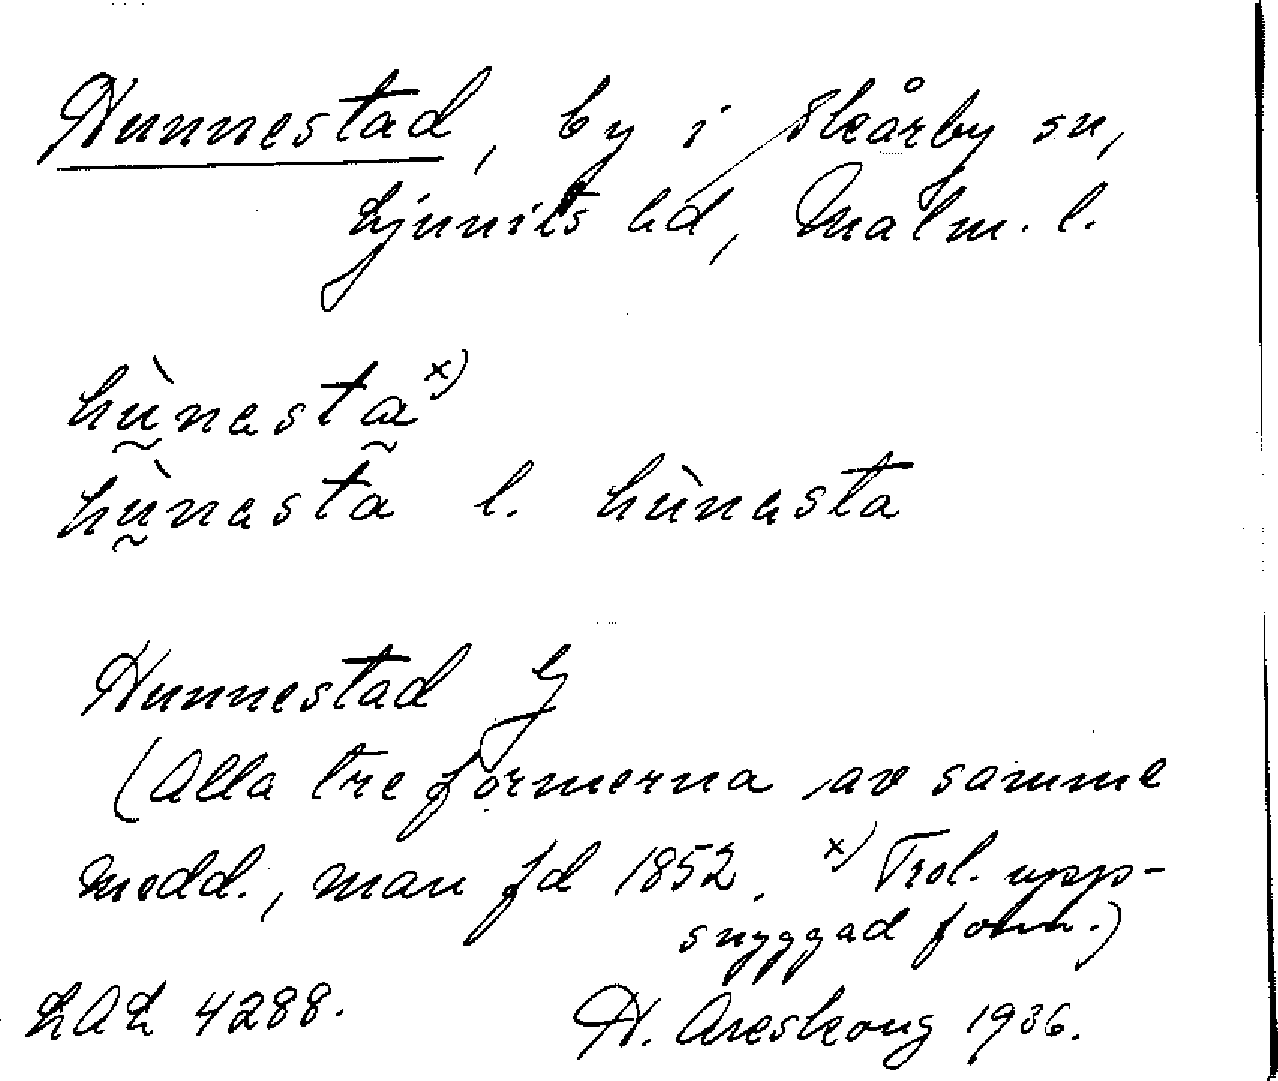 Hunnestad, by i Skårby sn,
Ljunits hd, Malm. l.
hṵ̀nesta̰ x)
hṵ̀nesta l. hùnesta
Hunnestad
(Alla tre formerna av samme
medd., man fd 1852. x) Trol. upp-
snyggad form.)
LAL 4288. H. Areskoug 1936.